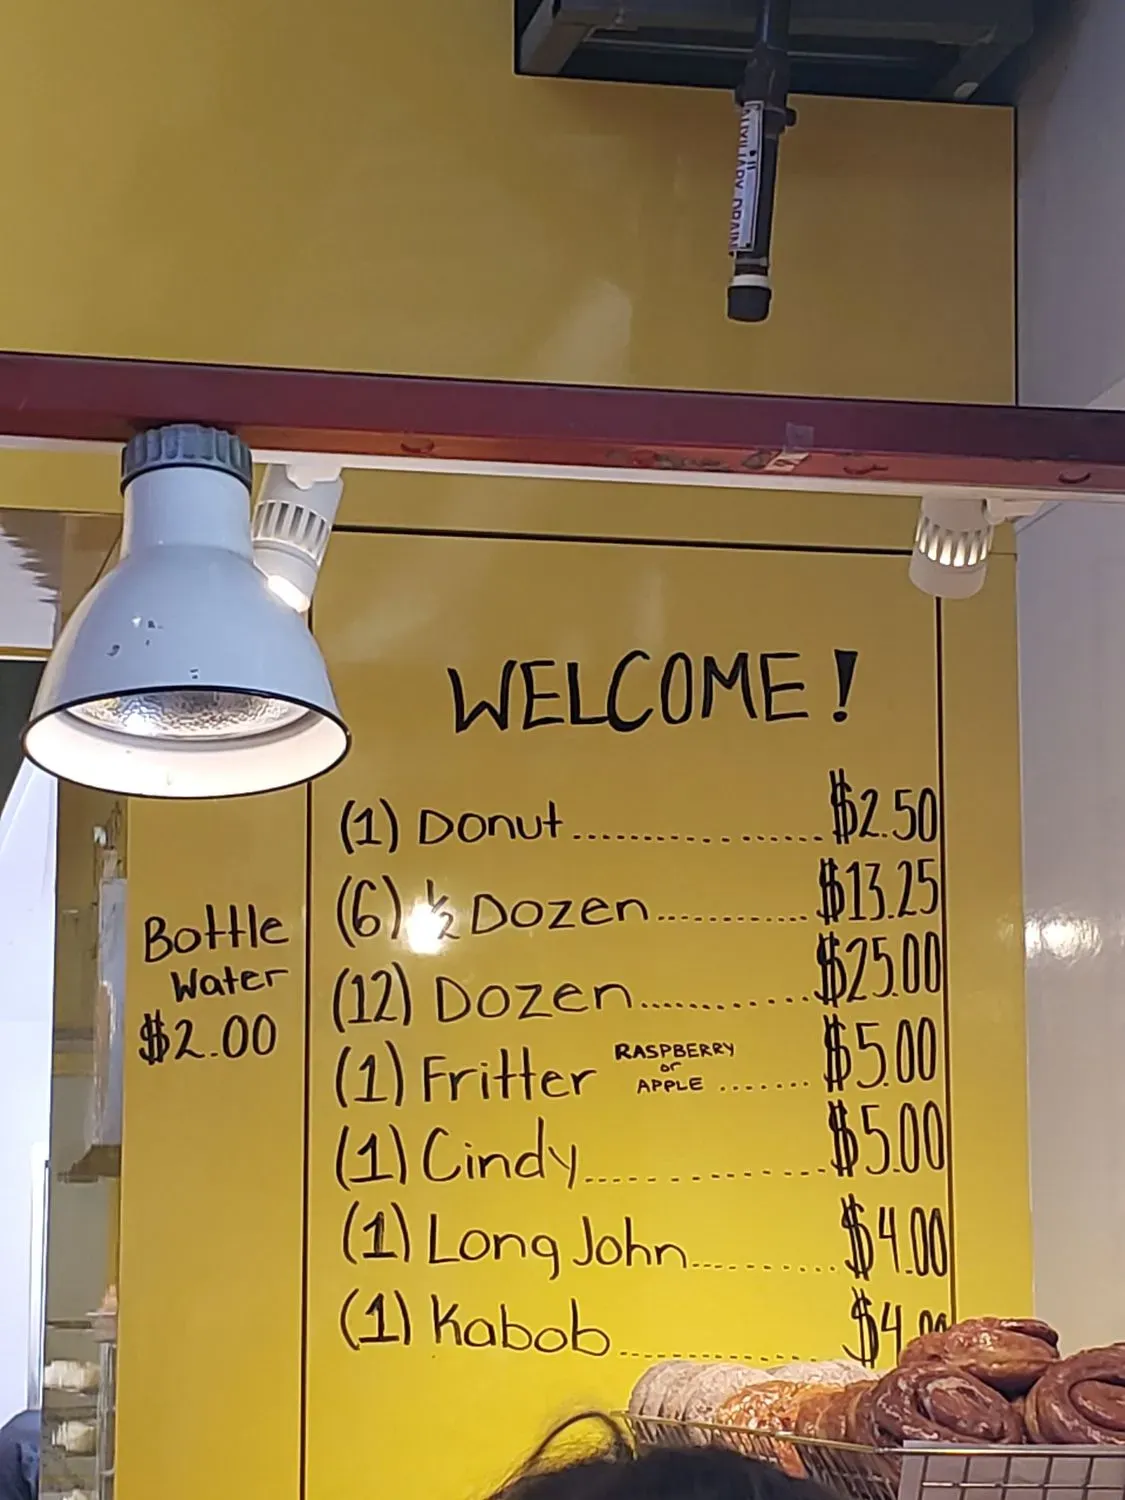 AUXILIARY DRAIN
WELCOME!
(1) Donut..................$2.50
(6) ½ Dozen............$13.25
(12) Dozen............$25.00
(1) Fritter RASPBERRY or APPLE .......$5.00
(1) Cindy..................$5.00
(1) Long John............$4.00
(1) Kabob..................$4.00
Bottle
Water
$2.00